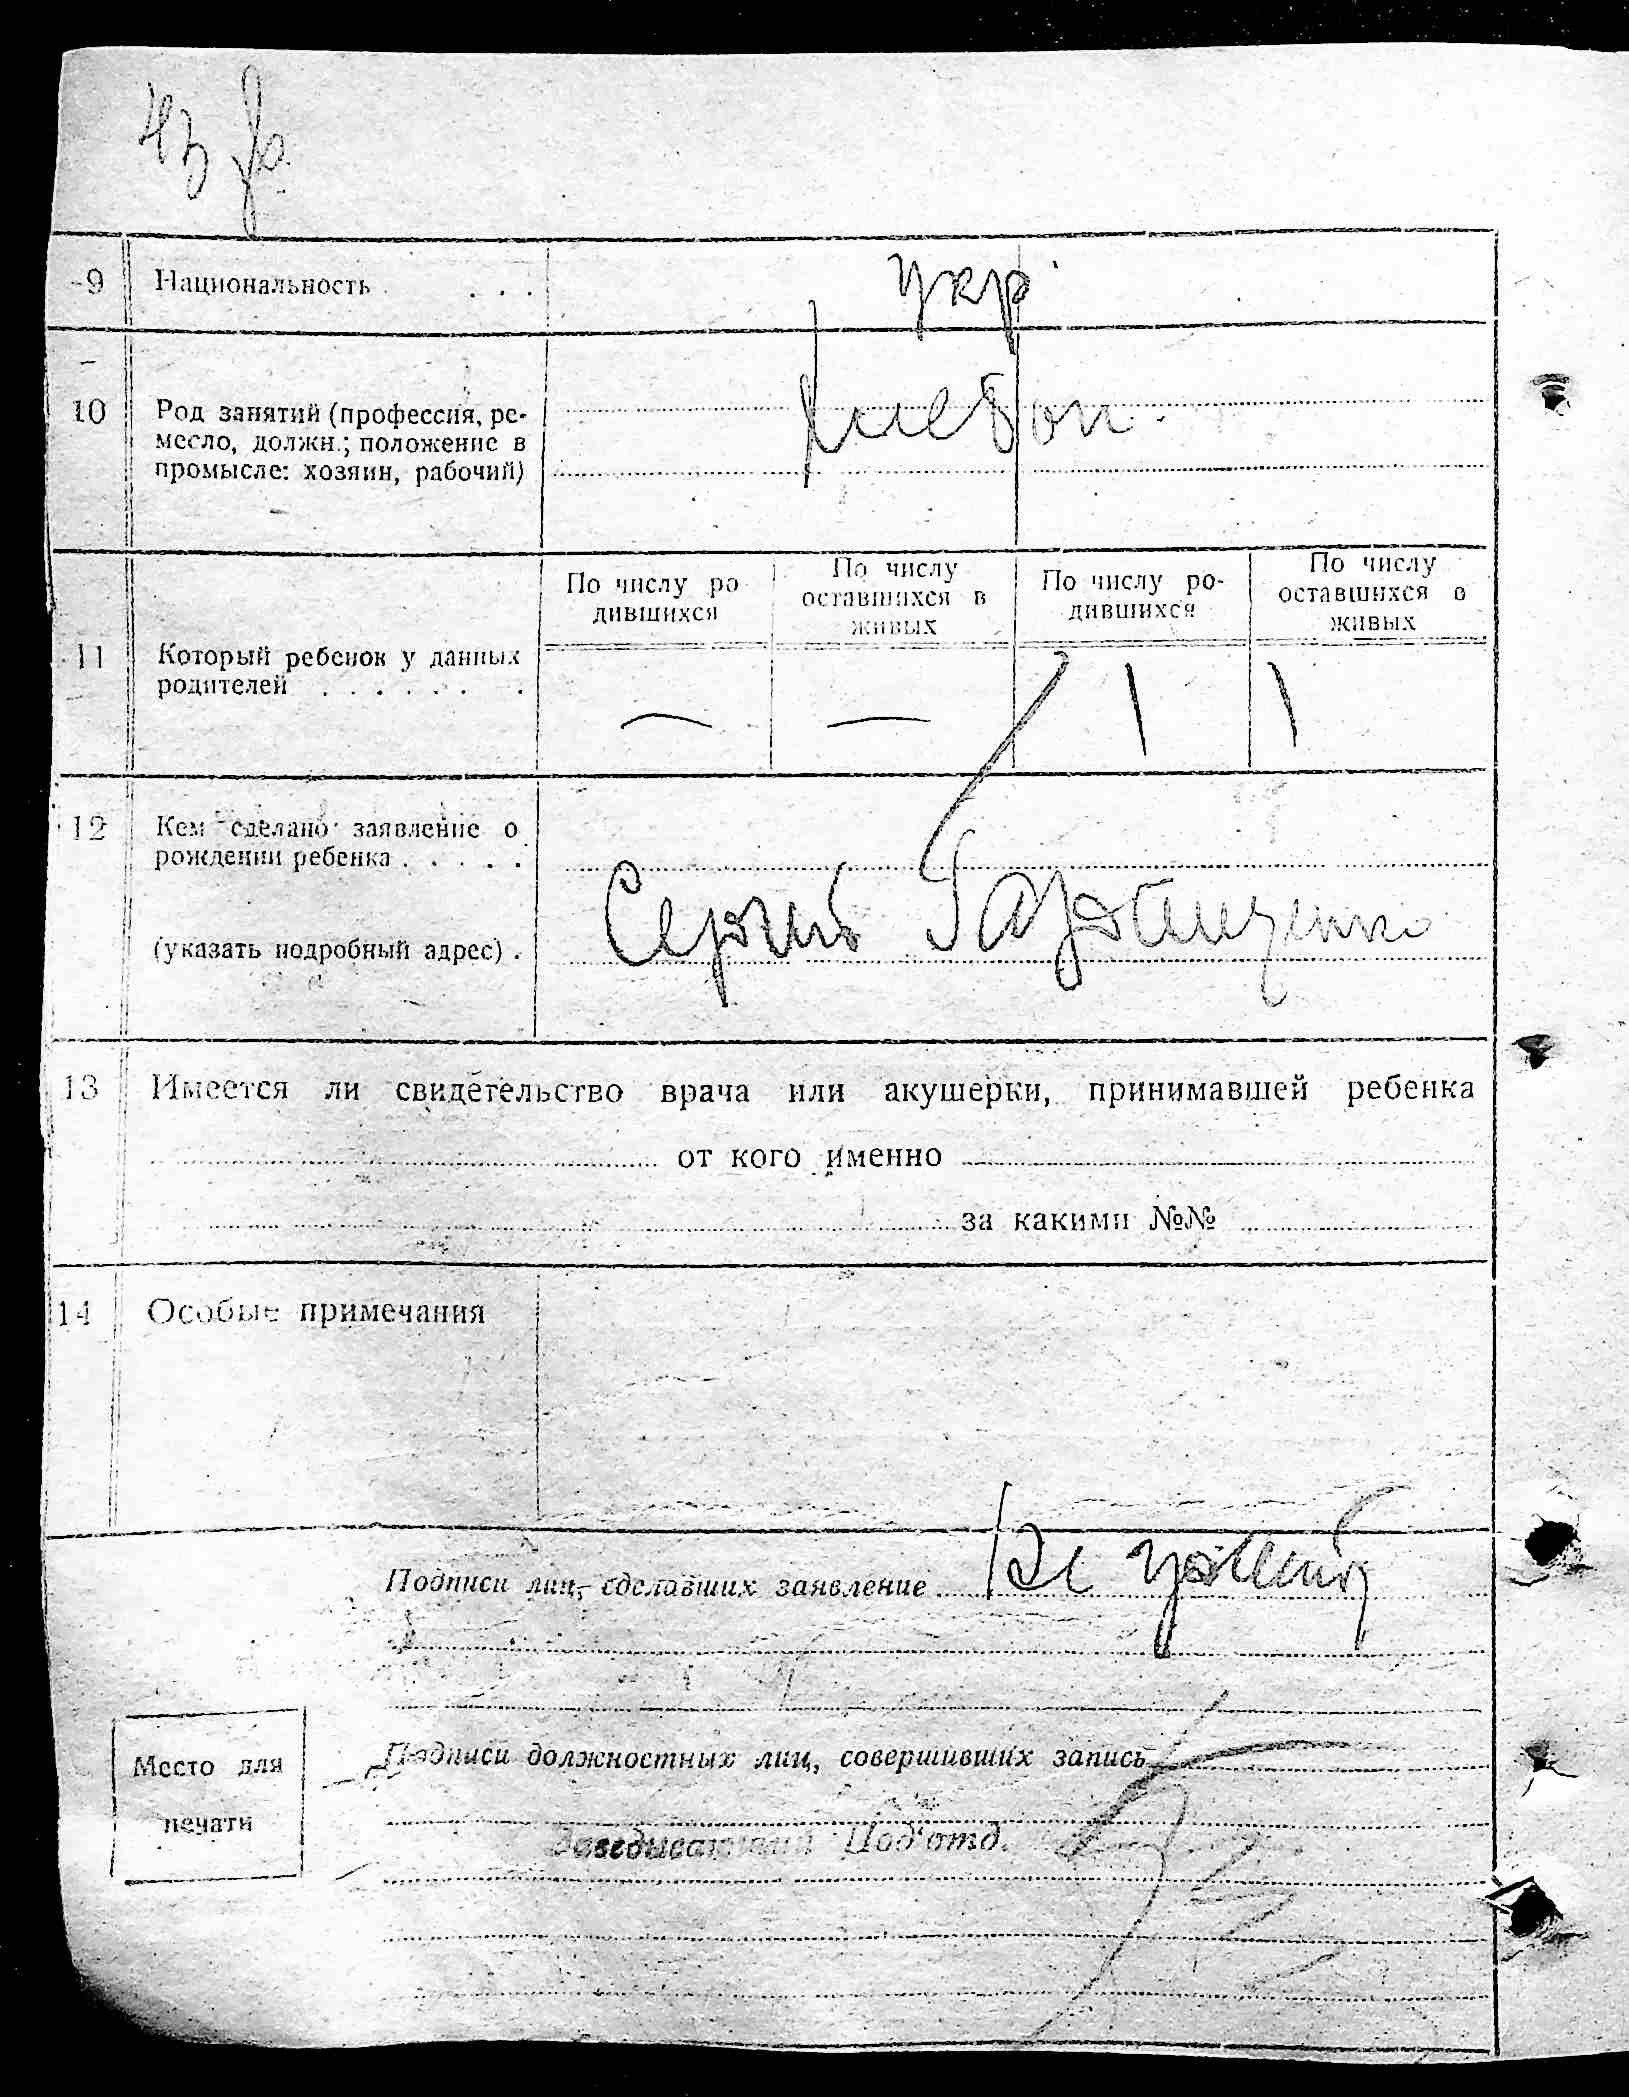 9 Национальность . . . . укр
10 Род занятий (профессия, ре-
месло, должн.; положение в
промысле: хозяин, рабочий)
хлебоп.
По числу ро
дившихся
По числу
оставшихся в
живых
По числу ро-
дившихся
По числу
оставшихся в
живых
11 Который ребенок у данных
родителей . . . . . . .
— — 1 1
12 Кем сделано заявление о
рождении ребенка . . . . .
(указать подробный адрес) .
Сергий
13 Имеется ли свидетельство врача или акушерки, принимавшей ребенка
от кого именно
за какими №№
14 Особые примечания
Подписи лиц, сделавших заявление
Подписи должностных лиц, совершивших запись
Место для
печати
Заведывающий Под'отд.